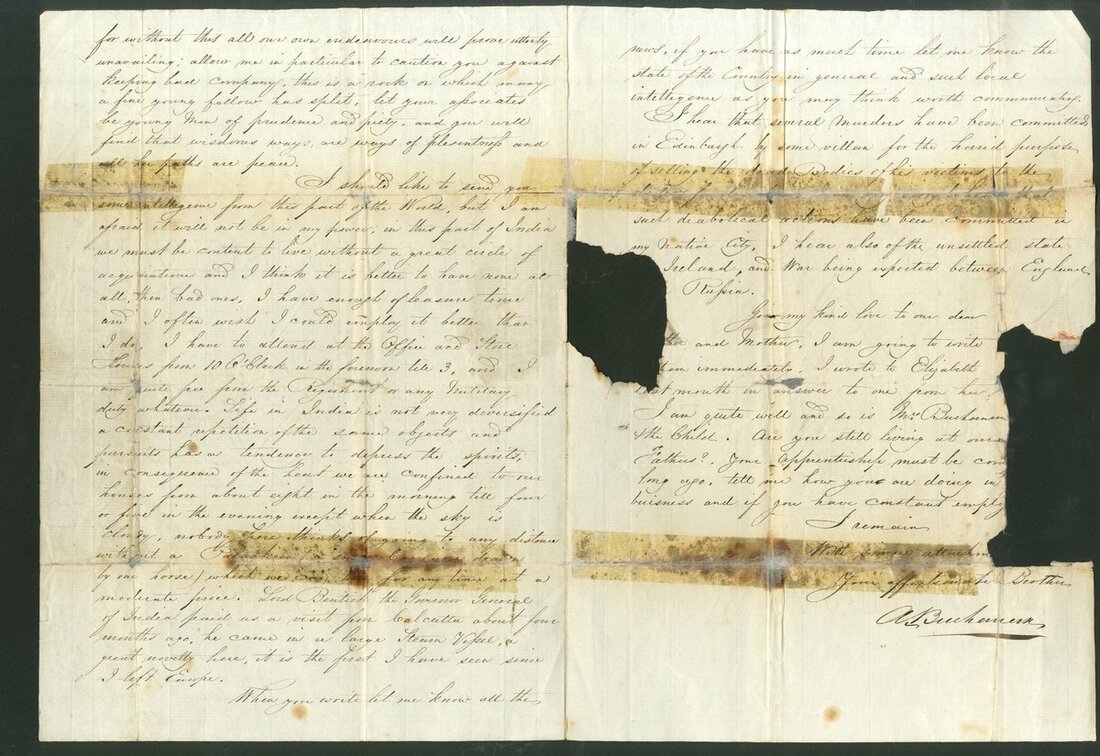 for without this all our own endeavours will prove utterly
unavailing; allow me in particular to caution you against
keeping bad company, this is a rock on which many
a fine young fellow has split, let your associates
be young Men of prudence and piety, and you will
find that wisdoms ways, are ways of plesentness and
all her paths are peace.
I should like to send you
some intelligence from this part of the World, but I am
afraid it will not be in my power, in this part of India
we must be content to live without a great circle of
acquaintance and I think it is better to have none at
all, then bad ones, I have enough of leasure time
and I often wish I could employ it better than
I do, I have to attend at the Office and Store
Houses from 10 O'Clock in the forenoon till 3, and I
am quite free from the Regimental or any Military
duty whatever. Life in India is not very diversified
a constant repetition of the same objects and
pursuits has a tendence to depress the spirits,
in consequence of the heat we are confined to our
houses from about eight in the morning till four
or five in the evening except when the sky is
cloudy, nobody here thinks of going to any distance
without a
by one horse) which we can for any time at a
moderate price. Lord Bentick the Govenor General
of India paid us a visit from Calcutta about four
months ago, he came in a large Steam Vessel, a
great novelty here, it is the first I have seen since
I left Europe.
When you write let me know all the
news, if you have as much time let me know the
state of the Country in general and such local
intellegence as you may think worth communicating.
I hear that several Murders have been committed
in Edinburgh by some villan for the horrid purpose
of selling the dead Bodies of his victims to the
such deabolical actions have been committed in
my Native City, I hear also of the unsettled state
Ireland, and War being expected between England
Russia.
Give my kind love to our dear
and Mother, I am going to write
immediately. I wrote to Elizabeth
last month in answer to one from her,
I am quite well and so is Mrs Buchanan
& the Child. Are you still living at our
Fathers? Your Apprentership must be
long ago, tell me how you are doing in
buisness and if you have constant
I remain
With sincere
Your affectionate Brother
A. Buchanan